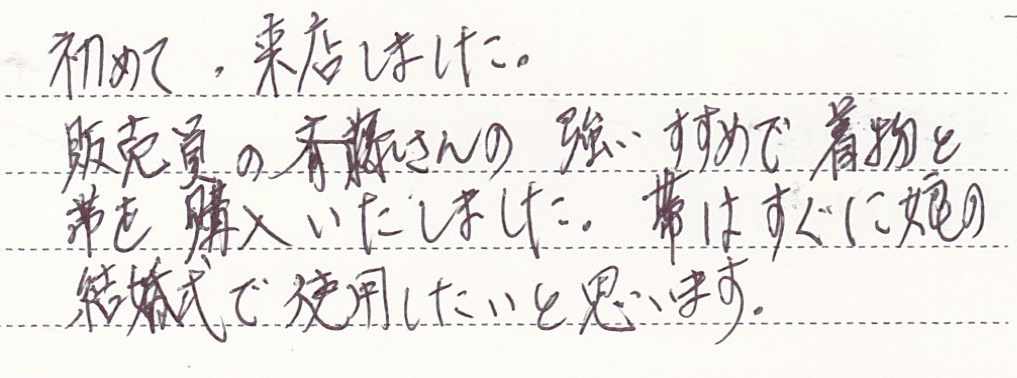 初めて、来店しました。
販売員の斉藤さんの強いすすめで着物と
帯を購入いたしました。帯はすぐに娘の
結婚式で使用したいと思います。